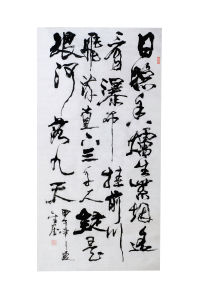 日照香爐生紫烟遥
看瀑布挂前川
飛流直下三千尺疑是
銀河落九天
甲午年